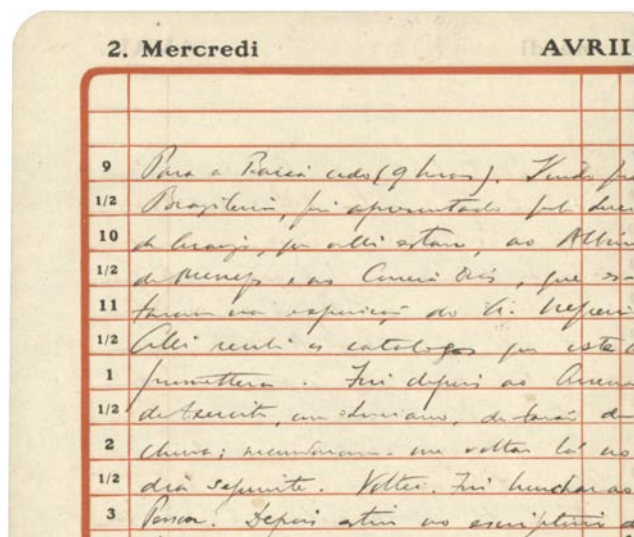 2. Mercredi AVRIL
9 Para a Baixa cedo (9 horas). Vindo
1/2 Brazileira, fui apresentado pelo
10 de Araujo, que alli estava, ao Albino
1/2 de Menezes e ao Correia Dias, que es-
11 tavam na exposição do
1/2 Alli recebi os catalogos que este
1 promettera. Fui depois ao Arsenal
1/2 do Exercito, com Luciano, de tarde
2 chuva; mandaram-me voltar lá no
1/2 dia seguinte. Voltei. Fui lunchar ao
3 Pessoa. Depois estive no escriptorio